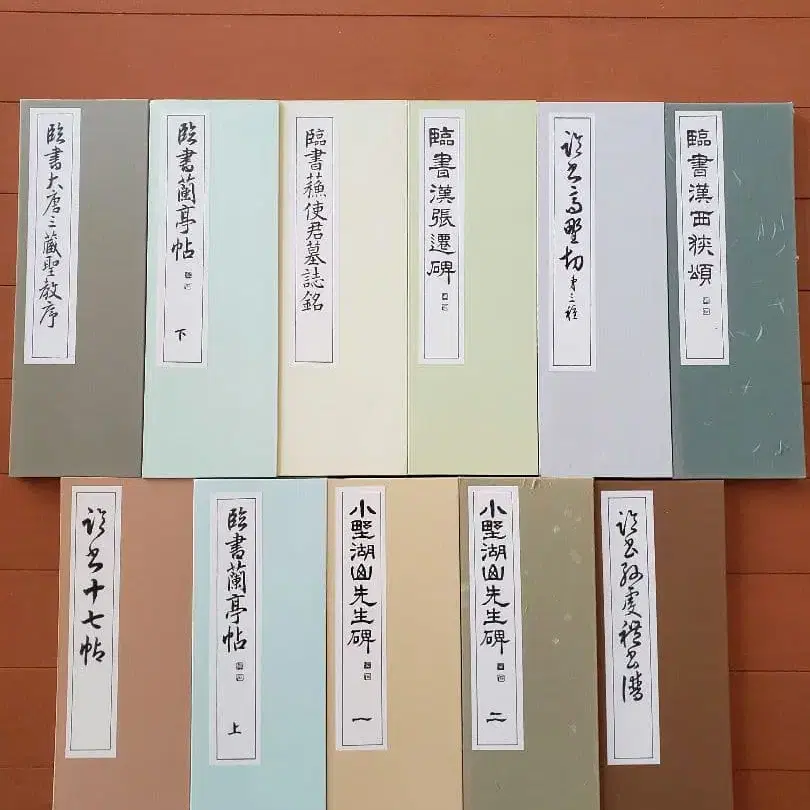 臨書大唐三藏聖教序
臨書蘭亭帖
下
臨書蘓使君墓誌銘
臨書漢張遷碑
臨書高野切 第三種
臨書漢西狹頌
臨書十七帖
臨書蘭亭帖
上
小野湖山先生碑
一
小野湖山先生碑
二
臨書孫虔禮書譜